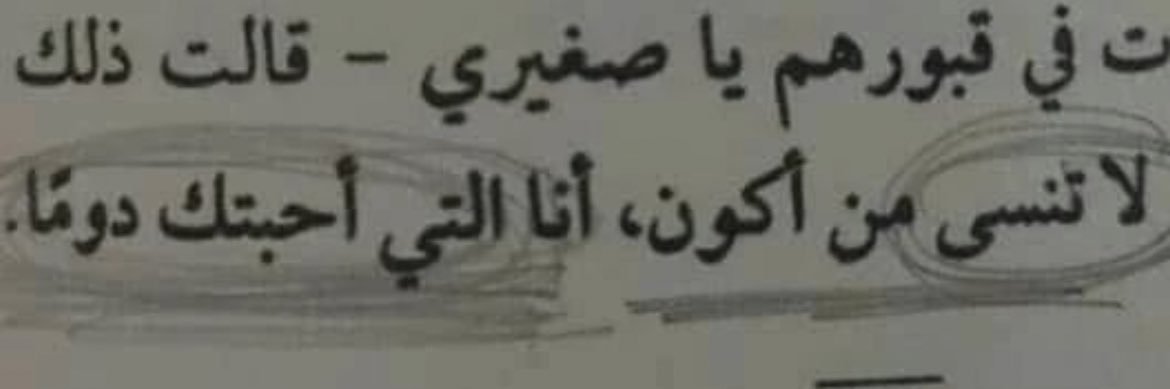 ت في قبورهم يا صغيري – قالت ذلك
لا تنسى من أكون، أنا التي أحبتك دومًا.